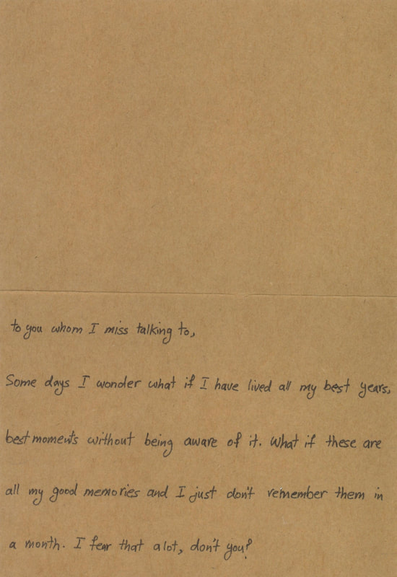 to you whom I miss talking to,
Some days I wonder what if I have lived all my best years,
best moments without being aware of it. What if these are
all my good memories and I just don't remember them in
a month. I fear that alot, don't you?